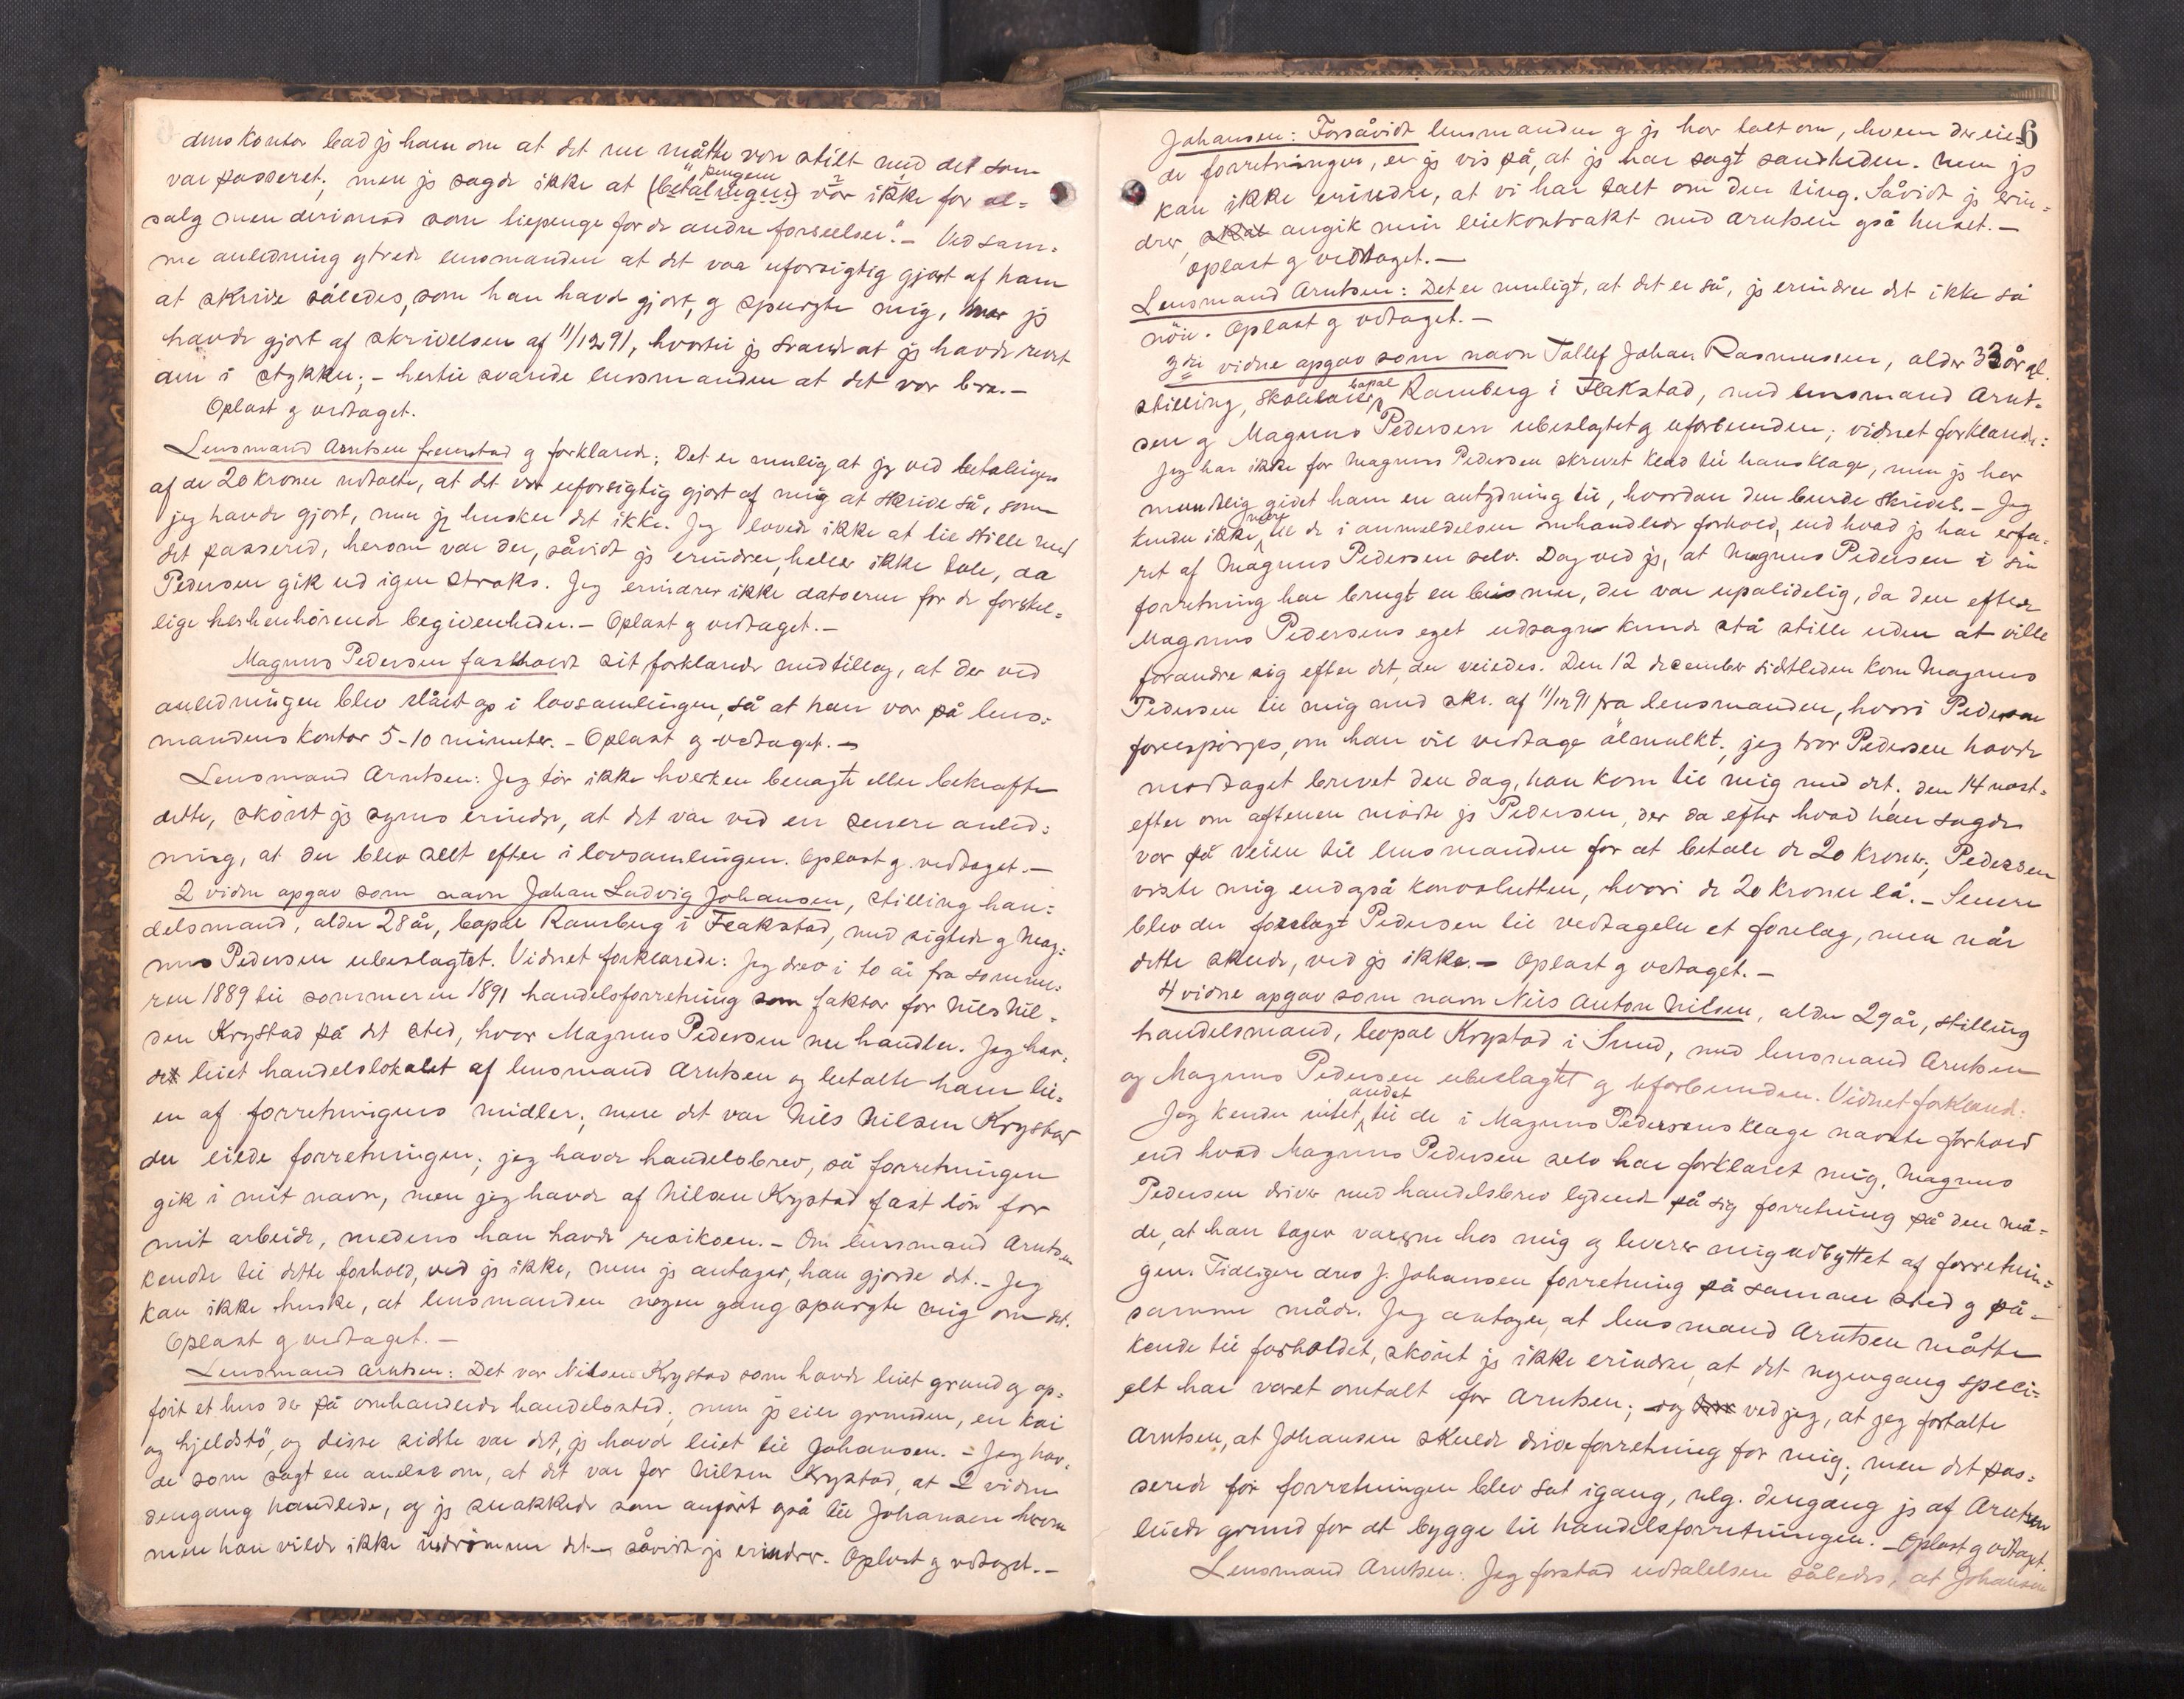 denskontor bad jg ham om at det nu måtte være stilt med det som
var passeret; men jg sagde ikke at (betalingen) "pengene var ikke for øl-
salg men derimod som tiepenge for de andre forseelser". - Ved sam-
me anledning ytrede lensmanden at det var uforsigtig gjort af ham
at skrive således, som han havde gjort, og spurgte mig, hvar jg
havde gjort af skrivelsen af 11/12 91, hvortil jg svarede at jg havde revet
den i stykker; - hertil svarede lensmanden at det var bra. -
Oplæst og vedtaget.
Lensmand Arntsen fremstod og forklarede: Det er mulig at jg ved betalingen
af de 20 kroner udtalte, at det var uforsigtig gjort af mig at skrive så, som
jeg havde gjort, men jg husker det ikke. Jeg lovede ikke at tie stille med
det passerede, herom var der, såvidt jg erindrer, heller ikke tale, da
Pedersen gik ud igen straks. Jeg erindrer ikke datoerne for de forskel-
lige herhenhørende begivenheder. - Oplæst og vedtaget. -
Magnus Pedersen fastholdt sit forklarede med tillæg, at der ved
anledningen blev slået op i lovsamlingen, så at han var på lens-
mandens kontor 5-10 minuter. - Oplæst og vedtaget. -
Lensmand Arntsen: Jeg tør ikke hverken benægte eller bekræfte
dette, skønt jg synes erindre, at det var ved en senere anled-
ning, at der blev seet efter i lovsamlingen. Oplæst g. vedtaget. -
2 vidne opgav som navn Johan Ludvig Johansen, stilling han-
delsmand, alder 28 år, bopæl Ramberg i Flakstad, med sigtede g Mag-
nus Pedersen ubeslægtet. Vidnet forklarede: Jeg drev i to år fra somme-
ren 1889 til sommeren 1891 handelsforretning som faktor for Nils Nil-
sen Krystad på det sted, hvor Magnus Pedersen nu handler. Jeg hav-
de leiet handelslokalet af lensmand Arntsen og betalte ham lei-
en af forretningens midler; men det var Nils Nilsen Krystad
der eiede forretningen; jeg havde handelsbrev, så forretningen
gik i mit navn, men jeg havde af Nilsen Krystad fast løn for
mit arbeide, medens han havde resikoen. - Om lensmand Arntsen
kendte til dette forhold, ved jg ikke, men jg antager, han gjorde det. - Jeg
kan ikke huske, at lensmanden nogen gang spurgte mig om det.
Oplæst g vedtaget. -
Lensmand Arntsen: Det var Nilsen Krystad som havde leiet grund og op-
ført et hus der på omhandlede handelssted; men jg eier grunden, en kai
og hjeldstø, og disse sidste var det, jg havde leiet til Johansen. - Jeg hav-
de som sagt en anelse om, at det var for Nilsen Krystad, at 2 vidne
dengang handlede, og jg snakkede som anført også til Johansen herom
men han vilde ikke indrømme det - såvidt jg erindrer. Oplæst g vedtaget. -
6
Johansen: Forsåvidt lensmanden g jg har talt om, hvem der eie-
de forretningen, er jg vis på, at jg har sagt sandheden. Men jg
kan ikke erindre, at vi har talt om den ting. Såvidt jg erin-
drer, skal angik min leiekontrakt med Arntsen også huset. -
Oplæst g vedtaget. -
Lensmand Arntsen: Det er muligt, at det er så, jg erindrer det ikke så
nøie. Oplæst g vedtaget. -
3die vidne opgav som navn Tollef Johan Rasmussen, alder 33 år gl.
stilling, skolelærer, bopæl Ramberg i Flakstad, med lensmand Arnt-
sen g Magnus Pedersen ubeslægtet g uforbunden; vidnet forklarede:
Jeg har ikke for Magnus Pedersen skrevet klad til hans klage, men jg har
mundtlig givet ham en antydning til, hvordan den burde skrives. - Jeg
kender ikke mere til de i anmeldelsen omhandlede forhold, end hvad jg har erfa-
ret af Magnus Pedersen selv. Dog ved jg, at Magnus Pedersen i sin
forretning har brugt en bismer, der var upålidelig, da den efter
Magnus Pedersens eget udsagn kunde stå stille uden at ville
forandre sig efter det, der veiedes. Den 12 december sidstleden kom Magnus
Pedersen til mig med skr. af 11/12 91 fra lensmanden, hvori Pedersen
forespørges, om han vil vedtage ølmulkt; jeg tror Pedersen havde
modtaget brevet den dag, han kom til mig med det; den 14 næst-
efter om aftenen mødte jg Pedersen, der da efter hvad han sagde
var på veien til lensmanden for at betale de 20 kroner; Pedersen
viste mig endogså konvolutten, hvori de 20 kroner lå. - Senere
blev der forelagt Pedersen til vedtagelse et forelæg, men når
dette skede, ved jg ikke. - Oplæst g vedtaget. -
4 vidne opgav som navn Nils Anton Nilsen, alder 29 år, stilling
handelsmand, bopæl Krystad i Sund, med lensmand Arntsen
og Magnus Pedersen ubeslægtet g uforbunden. Vidnet forklared:
Jeg kender intet andet til de i Magnus Pedersens klage nævnte forhold
end hvad Magnus Pedersen selv har forklaret mig. Magnus
Pedersen driver med handelsbrev lydende på sig forretning på den må-
de, at han tager varerne hos mig og leverer mig udbyttet af forretnin-
gen. Tidligere drev J. Johansen forretning på samme sted g på
samme måde. Jeg antager, at lensmand Arntsen måtte
kende til forholdet, skønt jg ikke erindrer, at det nogengang speci-
elt har været omtalt for Arntsen; og ved jeg, at jeg fortalte
Arntsen, at Johansen skulde drive forretning for mig; men det pas-
serede før forretningen blev sat igang, nlg. dengang jg af Arntsen
leiede grund for at bygge til handelsforretningen. - Oplæst g vedtaget.
Lensmand Arntsen: Jeg forstod udtalelsen således, at Johansen